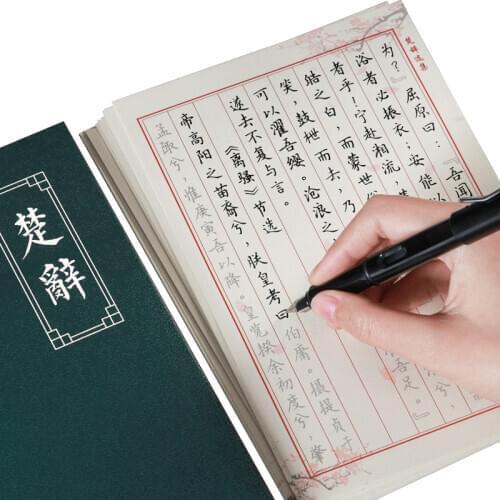 楚辭
楚辞选集
为？』 屈原曰：『吾闻
浴者必振衣；安能
者乎！宁赴相流，
皓之白，而蒙世
笑，鼓枻而去，乃
可以濯吾缨。沧浪之
吾足。』
遂去不复与言。
《离骚》节选
帝高阳之苗裔兮，朕皇考曰伯庸。摄提贞于
孟陬兮，惟庚寅吾以降。皇览揆余初度兮，肇